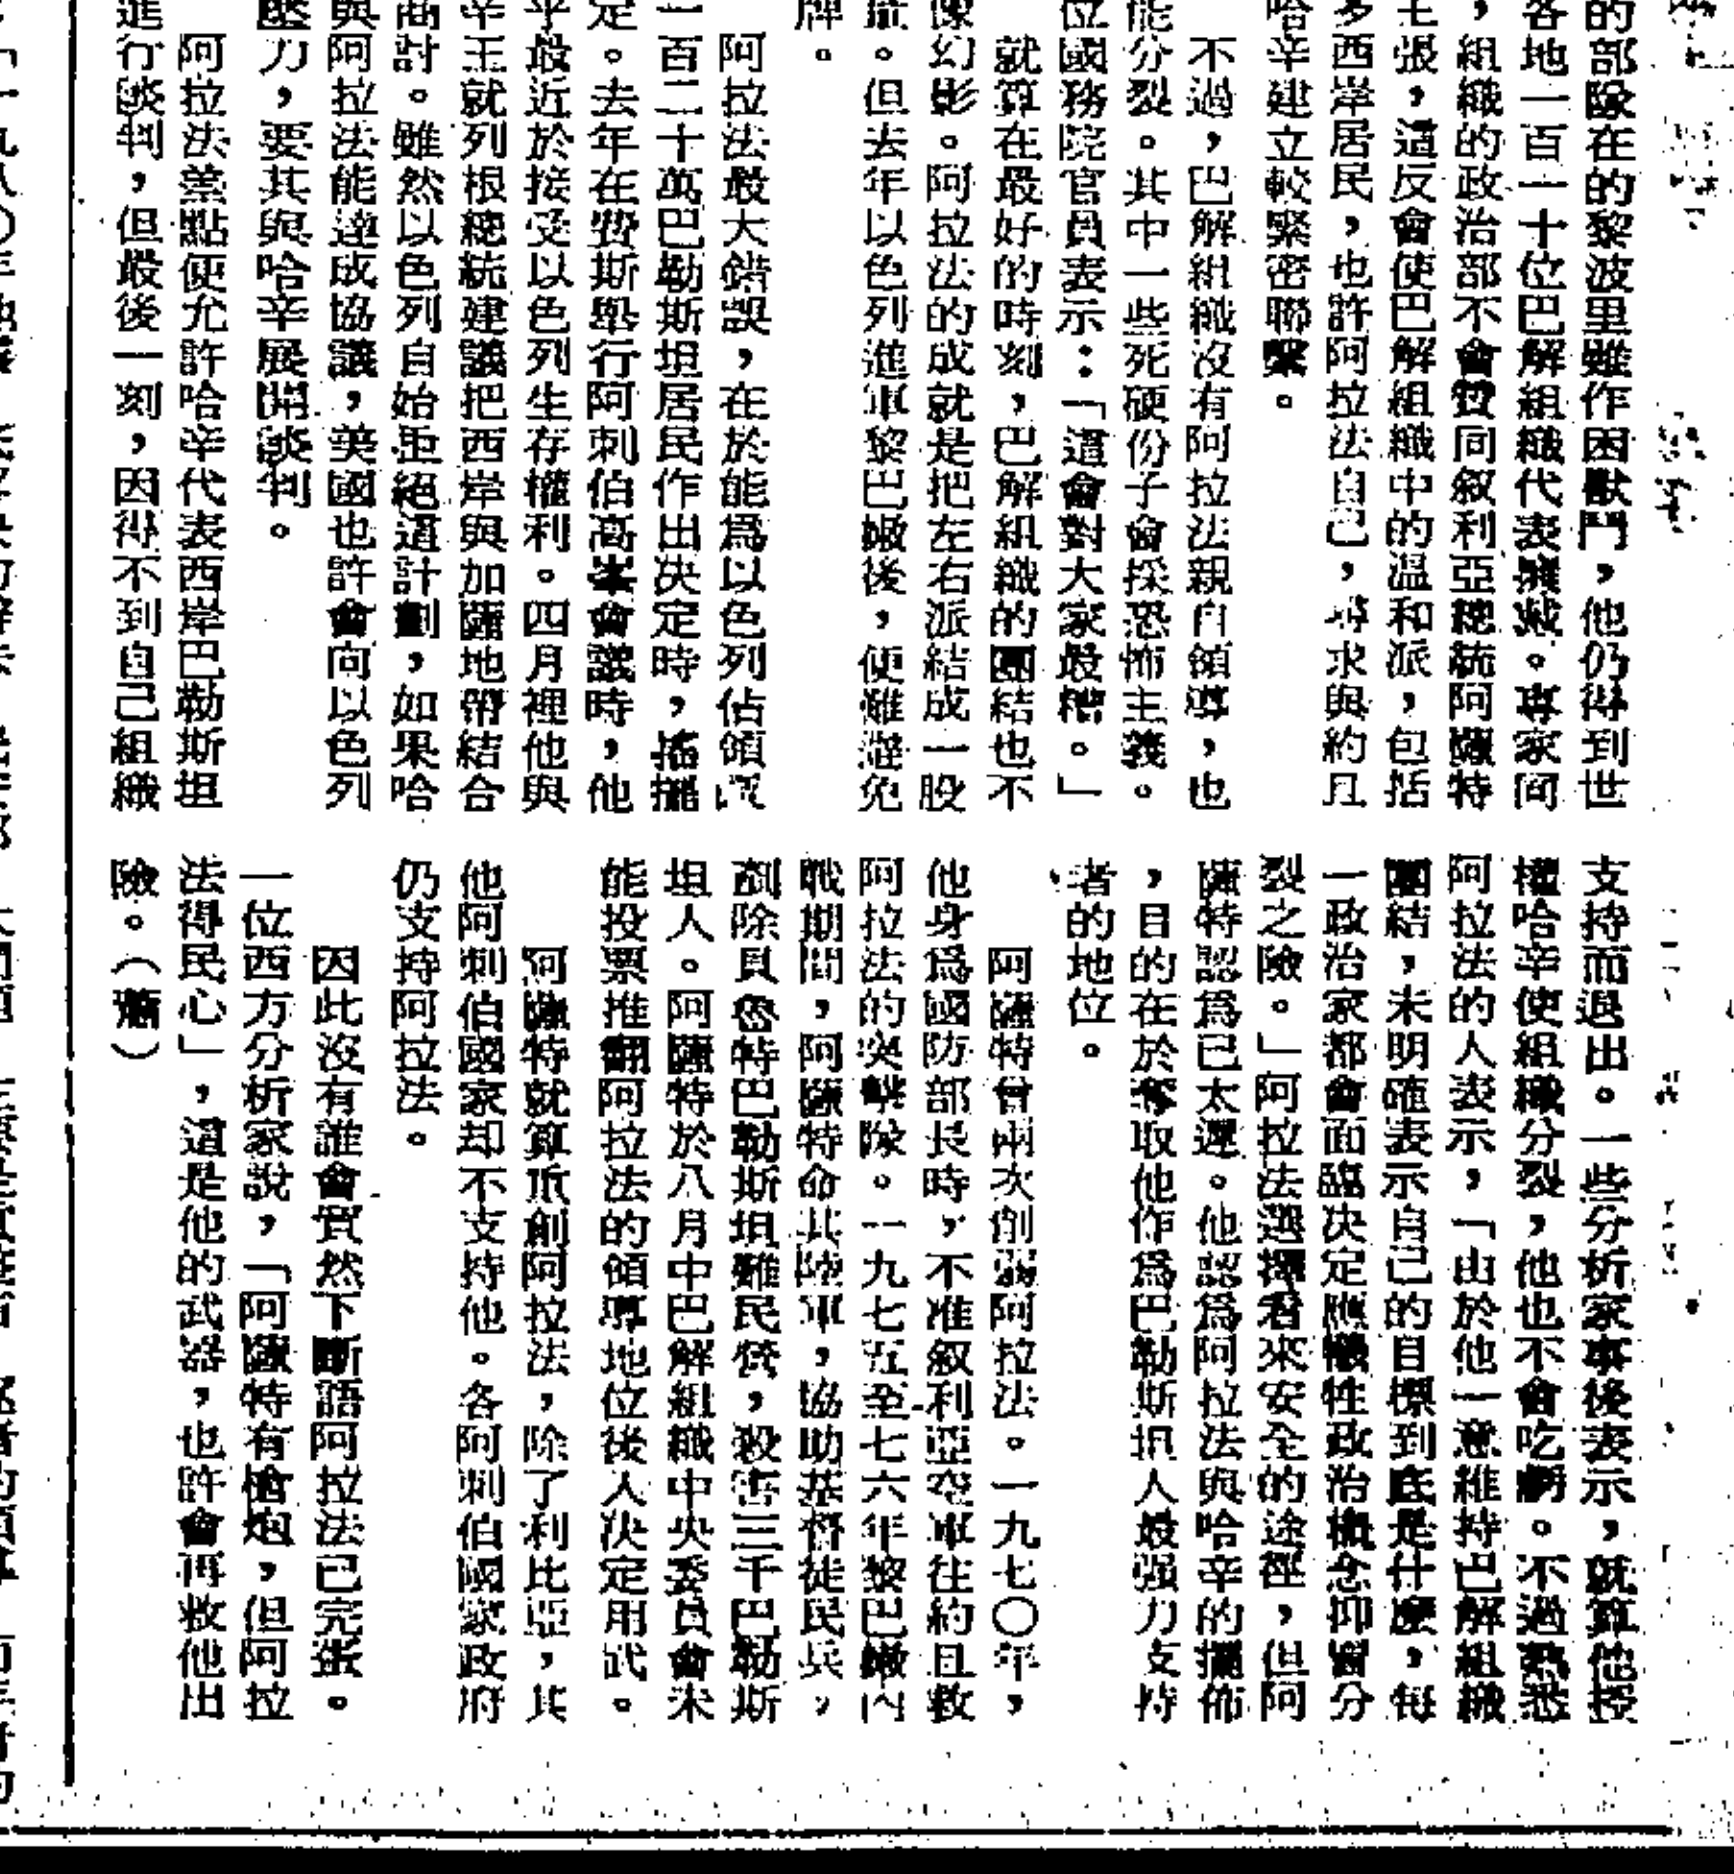 的部隊在的黎波里雖作困獸鬥，他仍得到世
各地一百一十位巴解組織代表擁戴。專家同
，組織的政治部不會贊同叙利亞總統阿薩特
主張，這反會使巴解組織中的溫和派，包括
多西岸居民，也許阿拉法自己，尋求與約旦
哈辛建立較緊密聯繫。
不過，巴解組織沒有阿拉法親自領導，也
能分裂。其中一些死硬份子會採恐怖主義。
位國務院官員表示：「這會對大家最糟。」
就算在最好的時刻，巴解組織的團結也不
像幻影。阿拉法的成就是把左右派結成一股
量。但去年以色列進軍黎巴嫩後，便難避免
牌。
阿拉法最大錯誤，在於能爲以色列佔領
一百二十萬巴勒斯坦居民作出決定時，搖擺
定。去年在費斯舉行阿刺伯高峯會議時，他
乎最近於接受以色列生存權利。四月裡他與
辛王就列根總統建議把西岸與加薩地帶結合
商討。雖然以色列自始拒絕這計劃，如果哈
與阿拉法能達成協議，美國也許會向以色列
壓力，要其與哈辛展開談判。
阿拉法差點便允許哈辛代表西岸巴勒斯坦
進行談判，但最後一刻，因得不到自己組織
支持而退出。一些分析家事後表示，就算他授
權哈辛使組織分裂，他也不會吃虧。不過熟悉
阿拉法的人表示，「由於他一意維持巴解組織
團結，未明確表示自己的目標到底是什麼，每
一政治家都會面臨決定應犧牲政治概念抑冒分
裂之險。」阿拉法選擇看來安全的途徑，但阿
薩特認爲已太遲。他認爲阿拉法與哈辛的擺佈
，目的在於奪取他作爲巴勒斯坦人最强力支持
者的地位。
阿薩特曾兩次削弱阿拉法。一九七〇年，
他身爲國防部長時，不准叙利亞空軍往約旦救
阿拉法的突擊隊。一九七五至七六年黎巴嫩內
戰期間，阿薩特命其陸軍，協助基督徒民兵，
剷除具魯特巴勒斯坦難民營，殺害三千巴勒斯
坦人。阿薩特於八月中巴解組織中央委員會未
能投票推翻阿拉法的領導地位後入決定用武。
阿薩特就算重創阿拉法，除了利比亞，其
他阿刺伯國家却不支持他。各阿刺伯國家政府
仍支持阿拉法。
因此沒有誰會貿然下斷語阿拉法已完蛋。
一位西方分析家說，「阿薩特有槍炮，但阿拉
法得民心」，這是他的武器，也許會再救他出
險。（蕭）